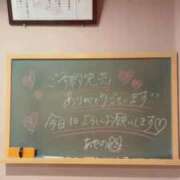 ご予約完売
ありがとうございます
今日もよろしくお願いします♡